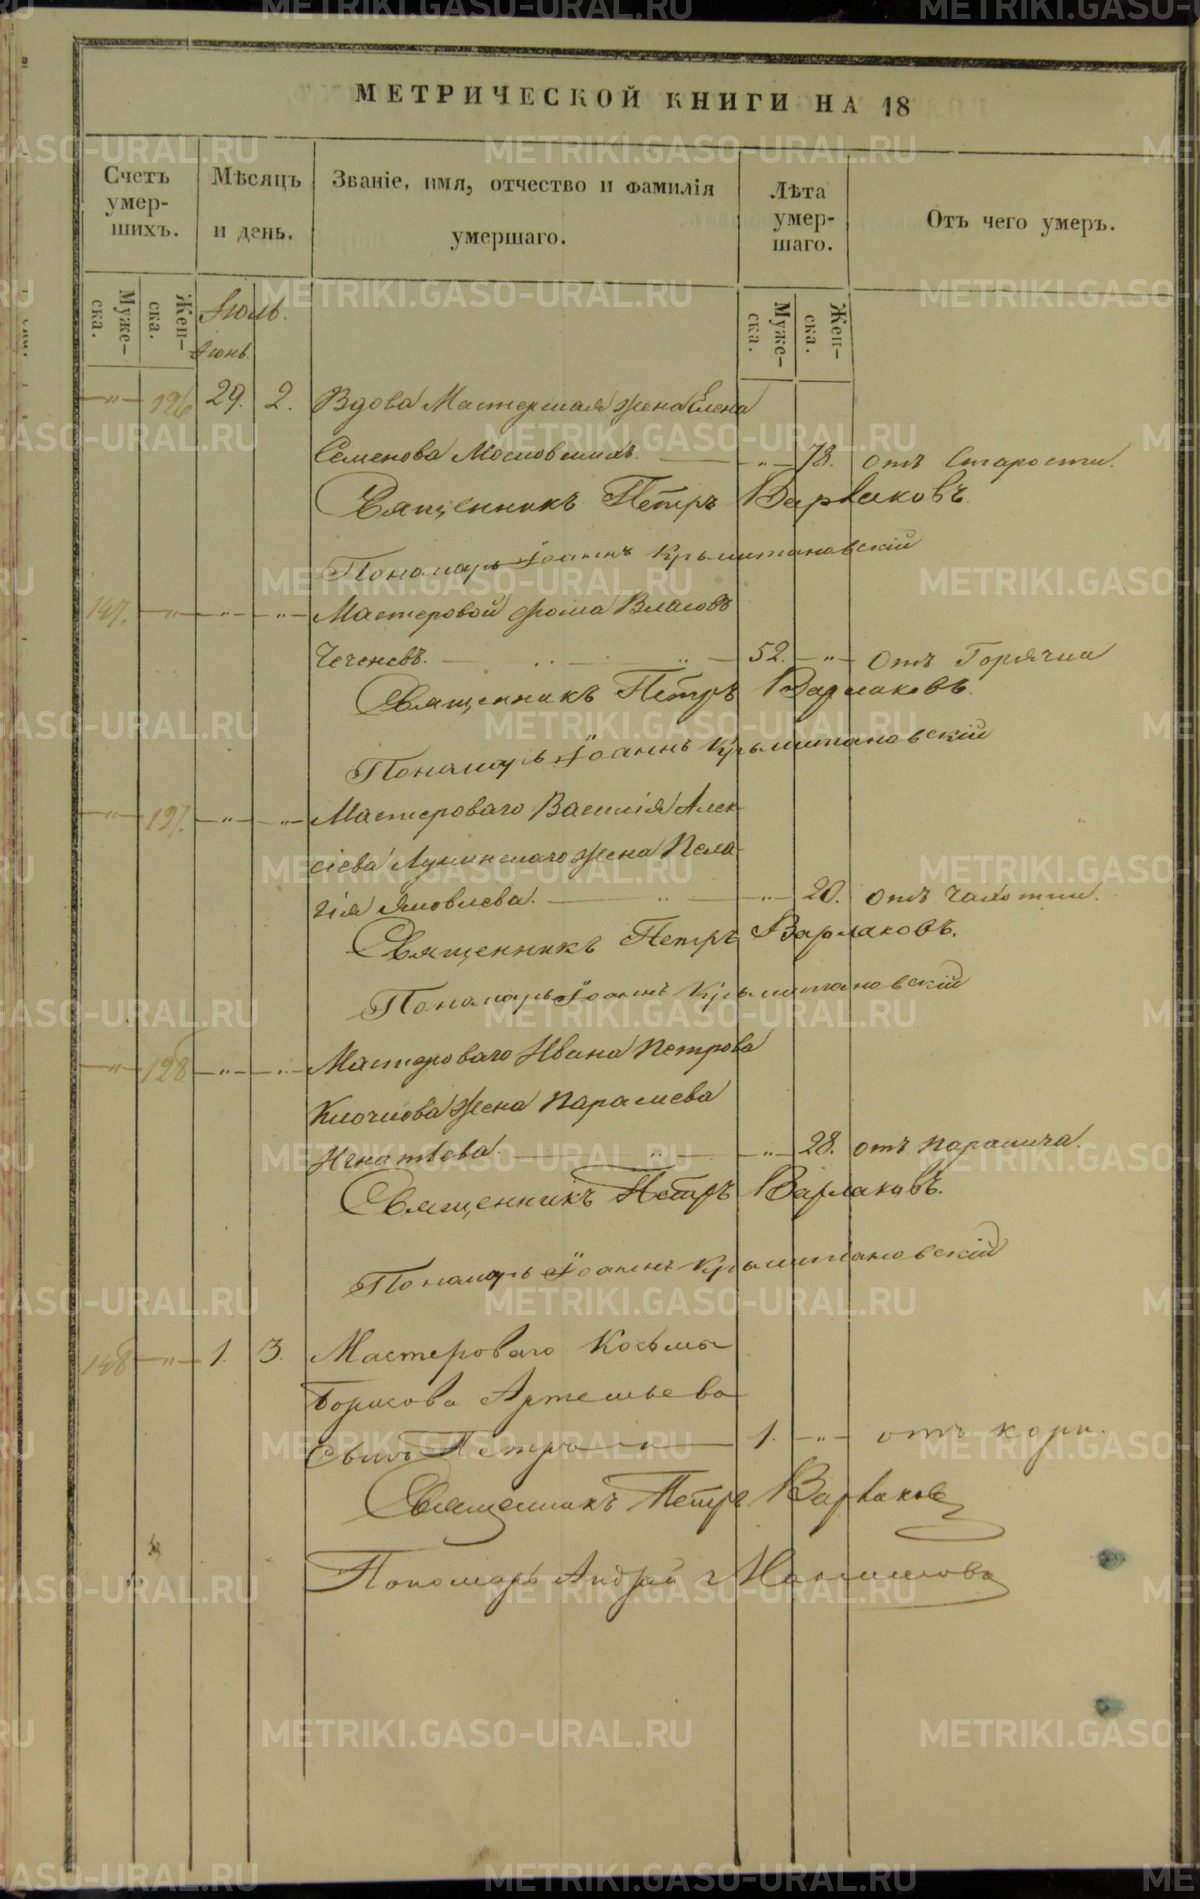 МЕТРИЧЕСКОЙ КНИГИ НА 18
Счетъ умер-шихъ.
Мѣсяцъ и день.
Званіе, имя, отчество и фамилія умершаго.
Лѣта умер-шаго.
Отъ чего умеръ.
Муже-ска.
Жен-ска.
Іюль.
Іюнь
Муже-ска.
Жен-ска.
—"— 126 29. 2. Вдова Мастерская жена Елена
Семенова Московскихъ. — " — 78. отъ Старости.
Священникъ Петръ Варлаковъ.
Пономарь Іоаннъ
147. —"— " — " — Мастеровой Фома Власовъ
Чеченевъ. — 52. — " — Отъ Горячки
Священникъ Петръ Варлаковъ.
Пономарь Іоаннъ
—"— 127. —"— " — Мастероваго Василія Алек-
сіева жена Пела-
гія Яковлева. — " — 20. отъ чахотки.
Священникъ Петръ Варлаковъ.
Пономарь Іоаннъ
—"— 128 —"— " — Мастероваго Ивана Петрова
Клочкова жена Параскева
Игнатіева. — " — 28. отъ паралича.
Священникъ Петръ Варлаковъ.
Пономарь Іоаннъ
148 —"— 1. 3. Мастероваго Козьмы
Борисова Артемьева
Сынъ Петръ — " — 1. — " — отъ кори.
Священникъ Петръ Варлаков
Пономарь Андрей
METRIKI.GASO-URAL.RU